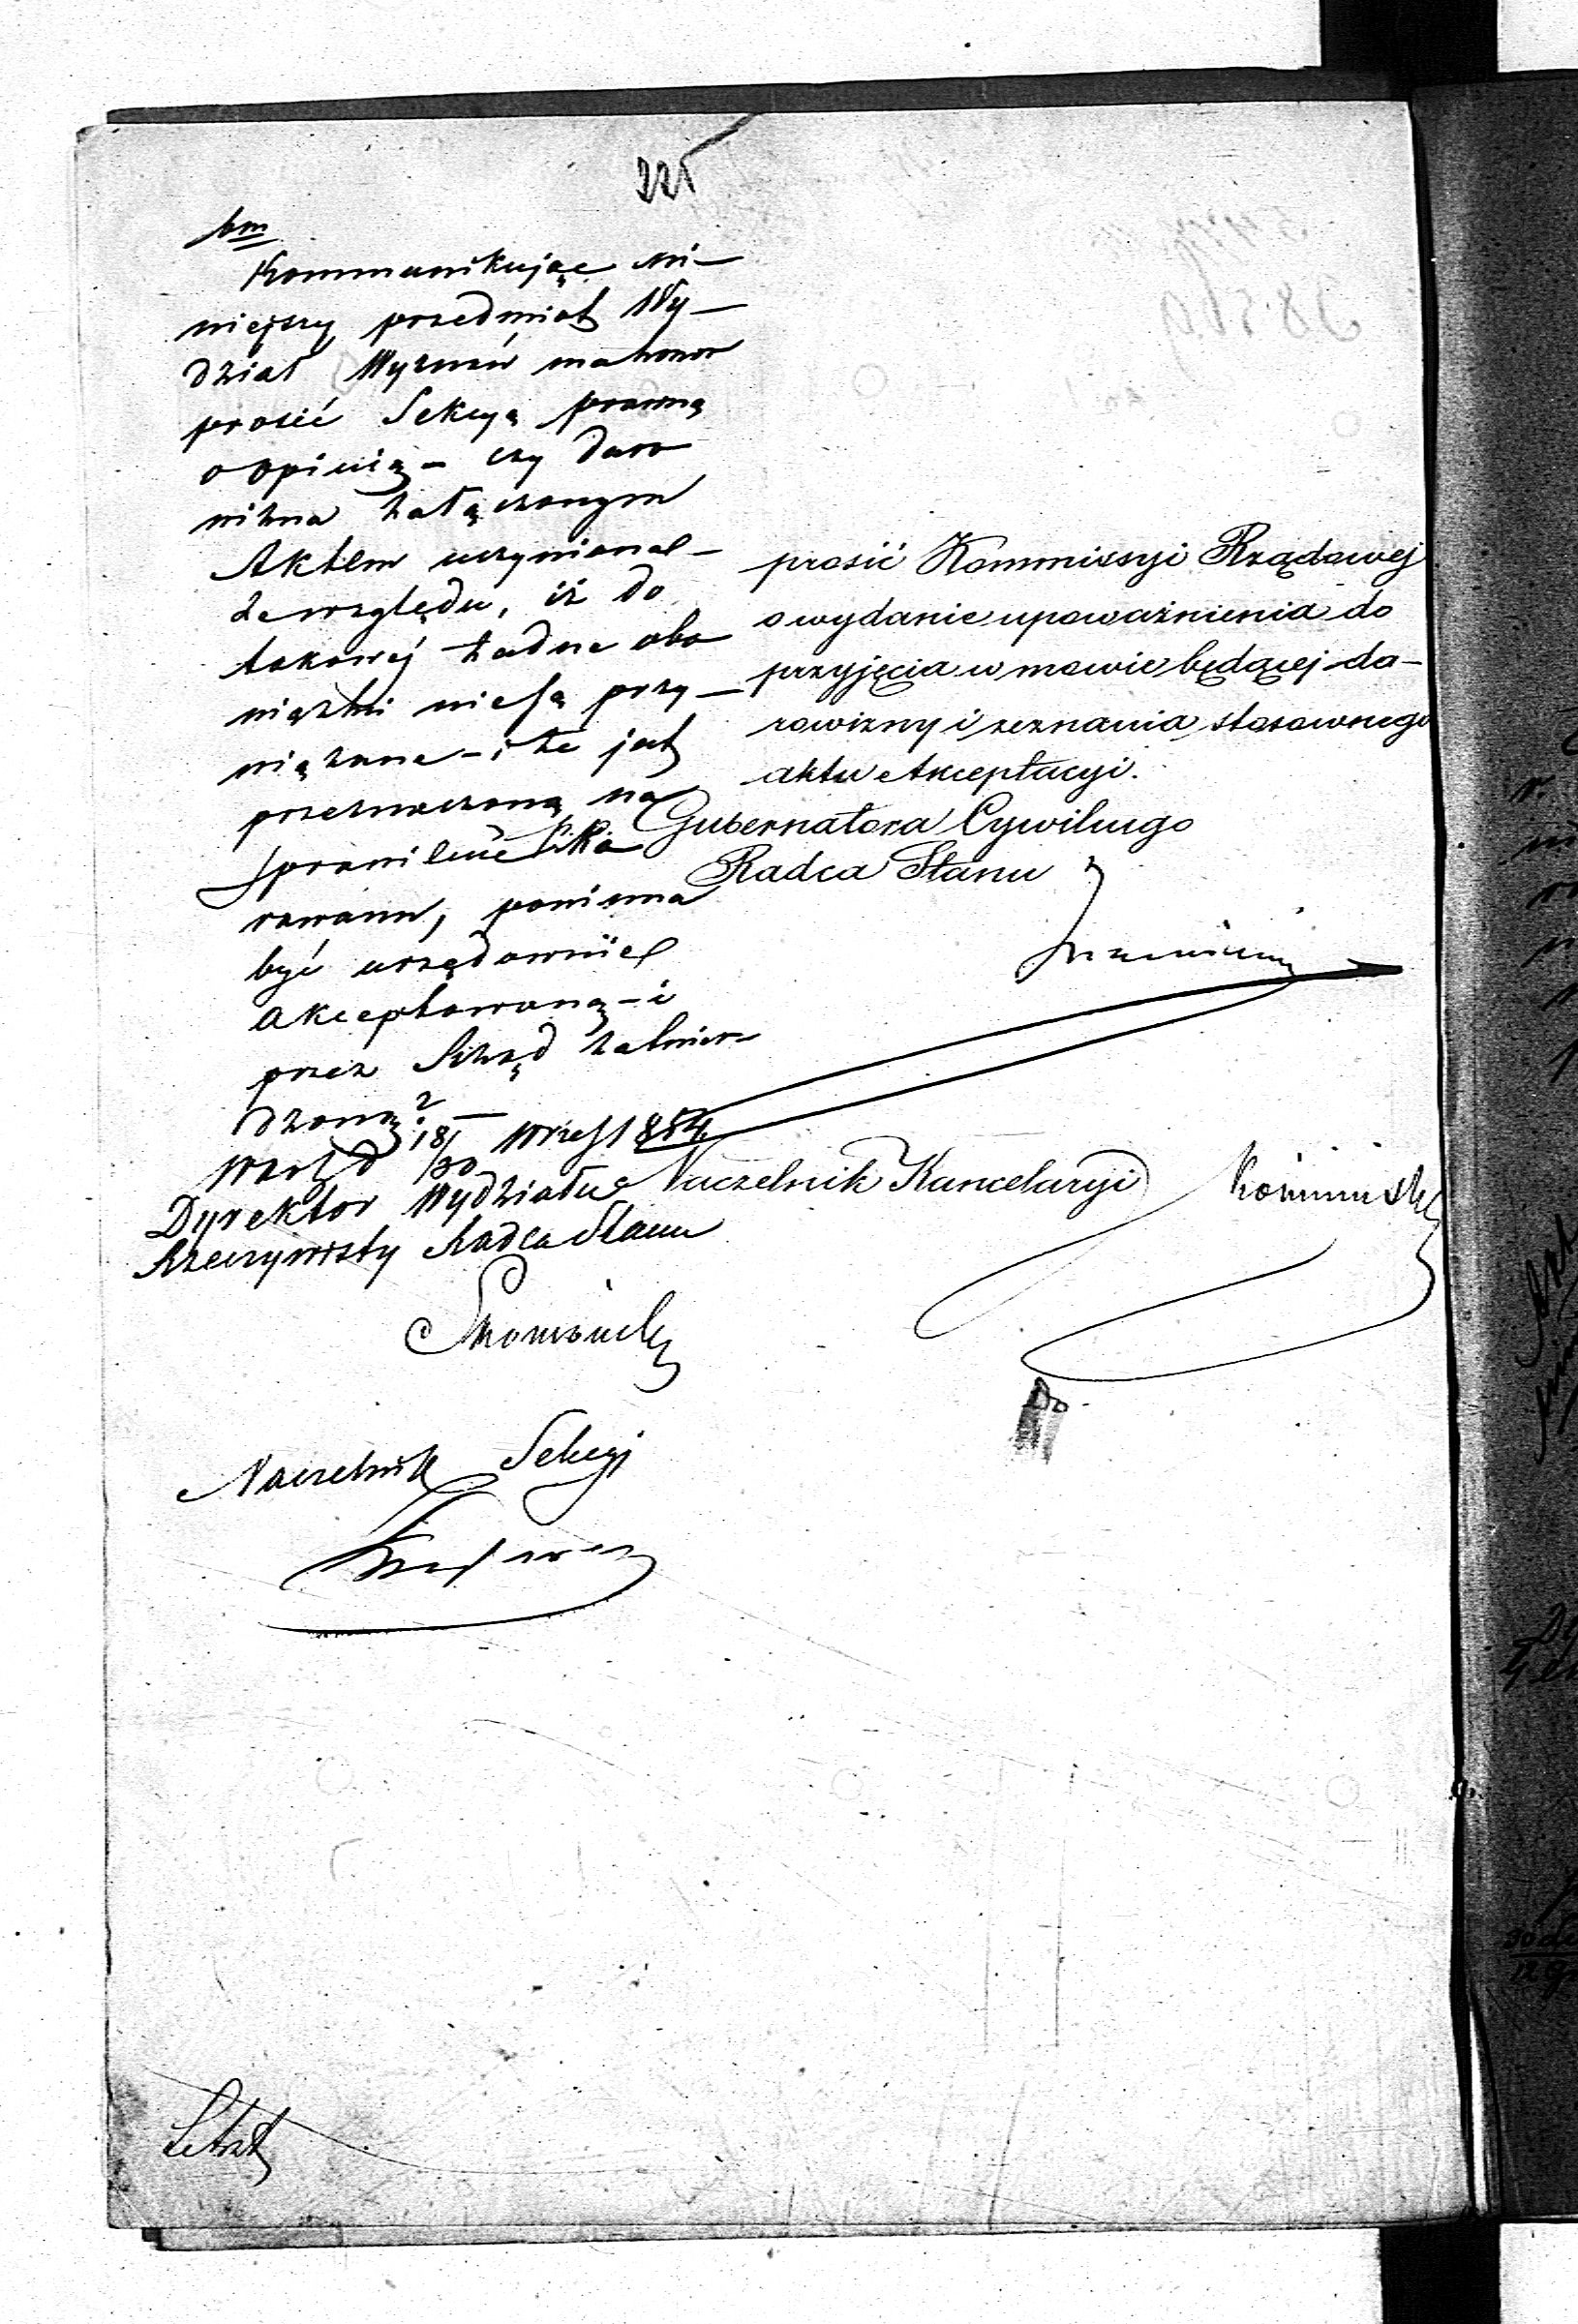 225
bm
Kommunikując ni-
niejszy przedmiot Wy-
dział Wyznań ma honor
prosić Sekcyą prawną
o opinią - czy daro
wizna załączonym
Aktem uczyniona -
ze względu, iż do
takowej żadne obo
wiązki nie są przy-
wiązane - i że jest
przeznaczoną na
sprawienie
rowanu, powinna
być urzędownie
akceptowaną - i
przez Rząd zatwier-
dzoną? -
Warsz d 18/30 Wrześ 1854
Dyrektor Wydziału
Rzeczywisty Radca Stanu
Naczelnik Sekcyi
prosić Kommissyi Rządowej
o wydanie upoważnienia do
przyjęcia w mowie będącej da-
rowizny i zeznania stosownego
aktu Akceptacyi.
p.p. Gubernatora Cywilnego
Radca Stanu
Naczelnik Kancelaryi